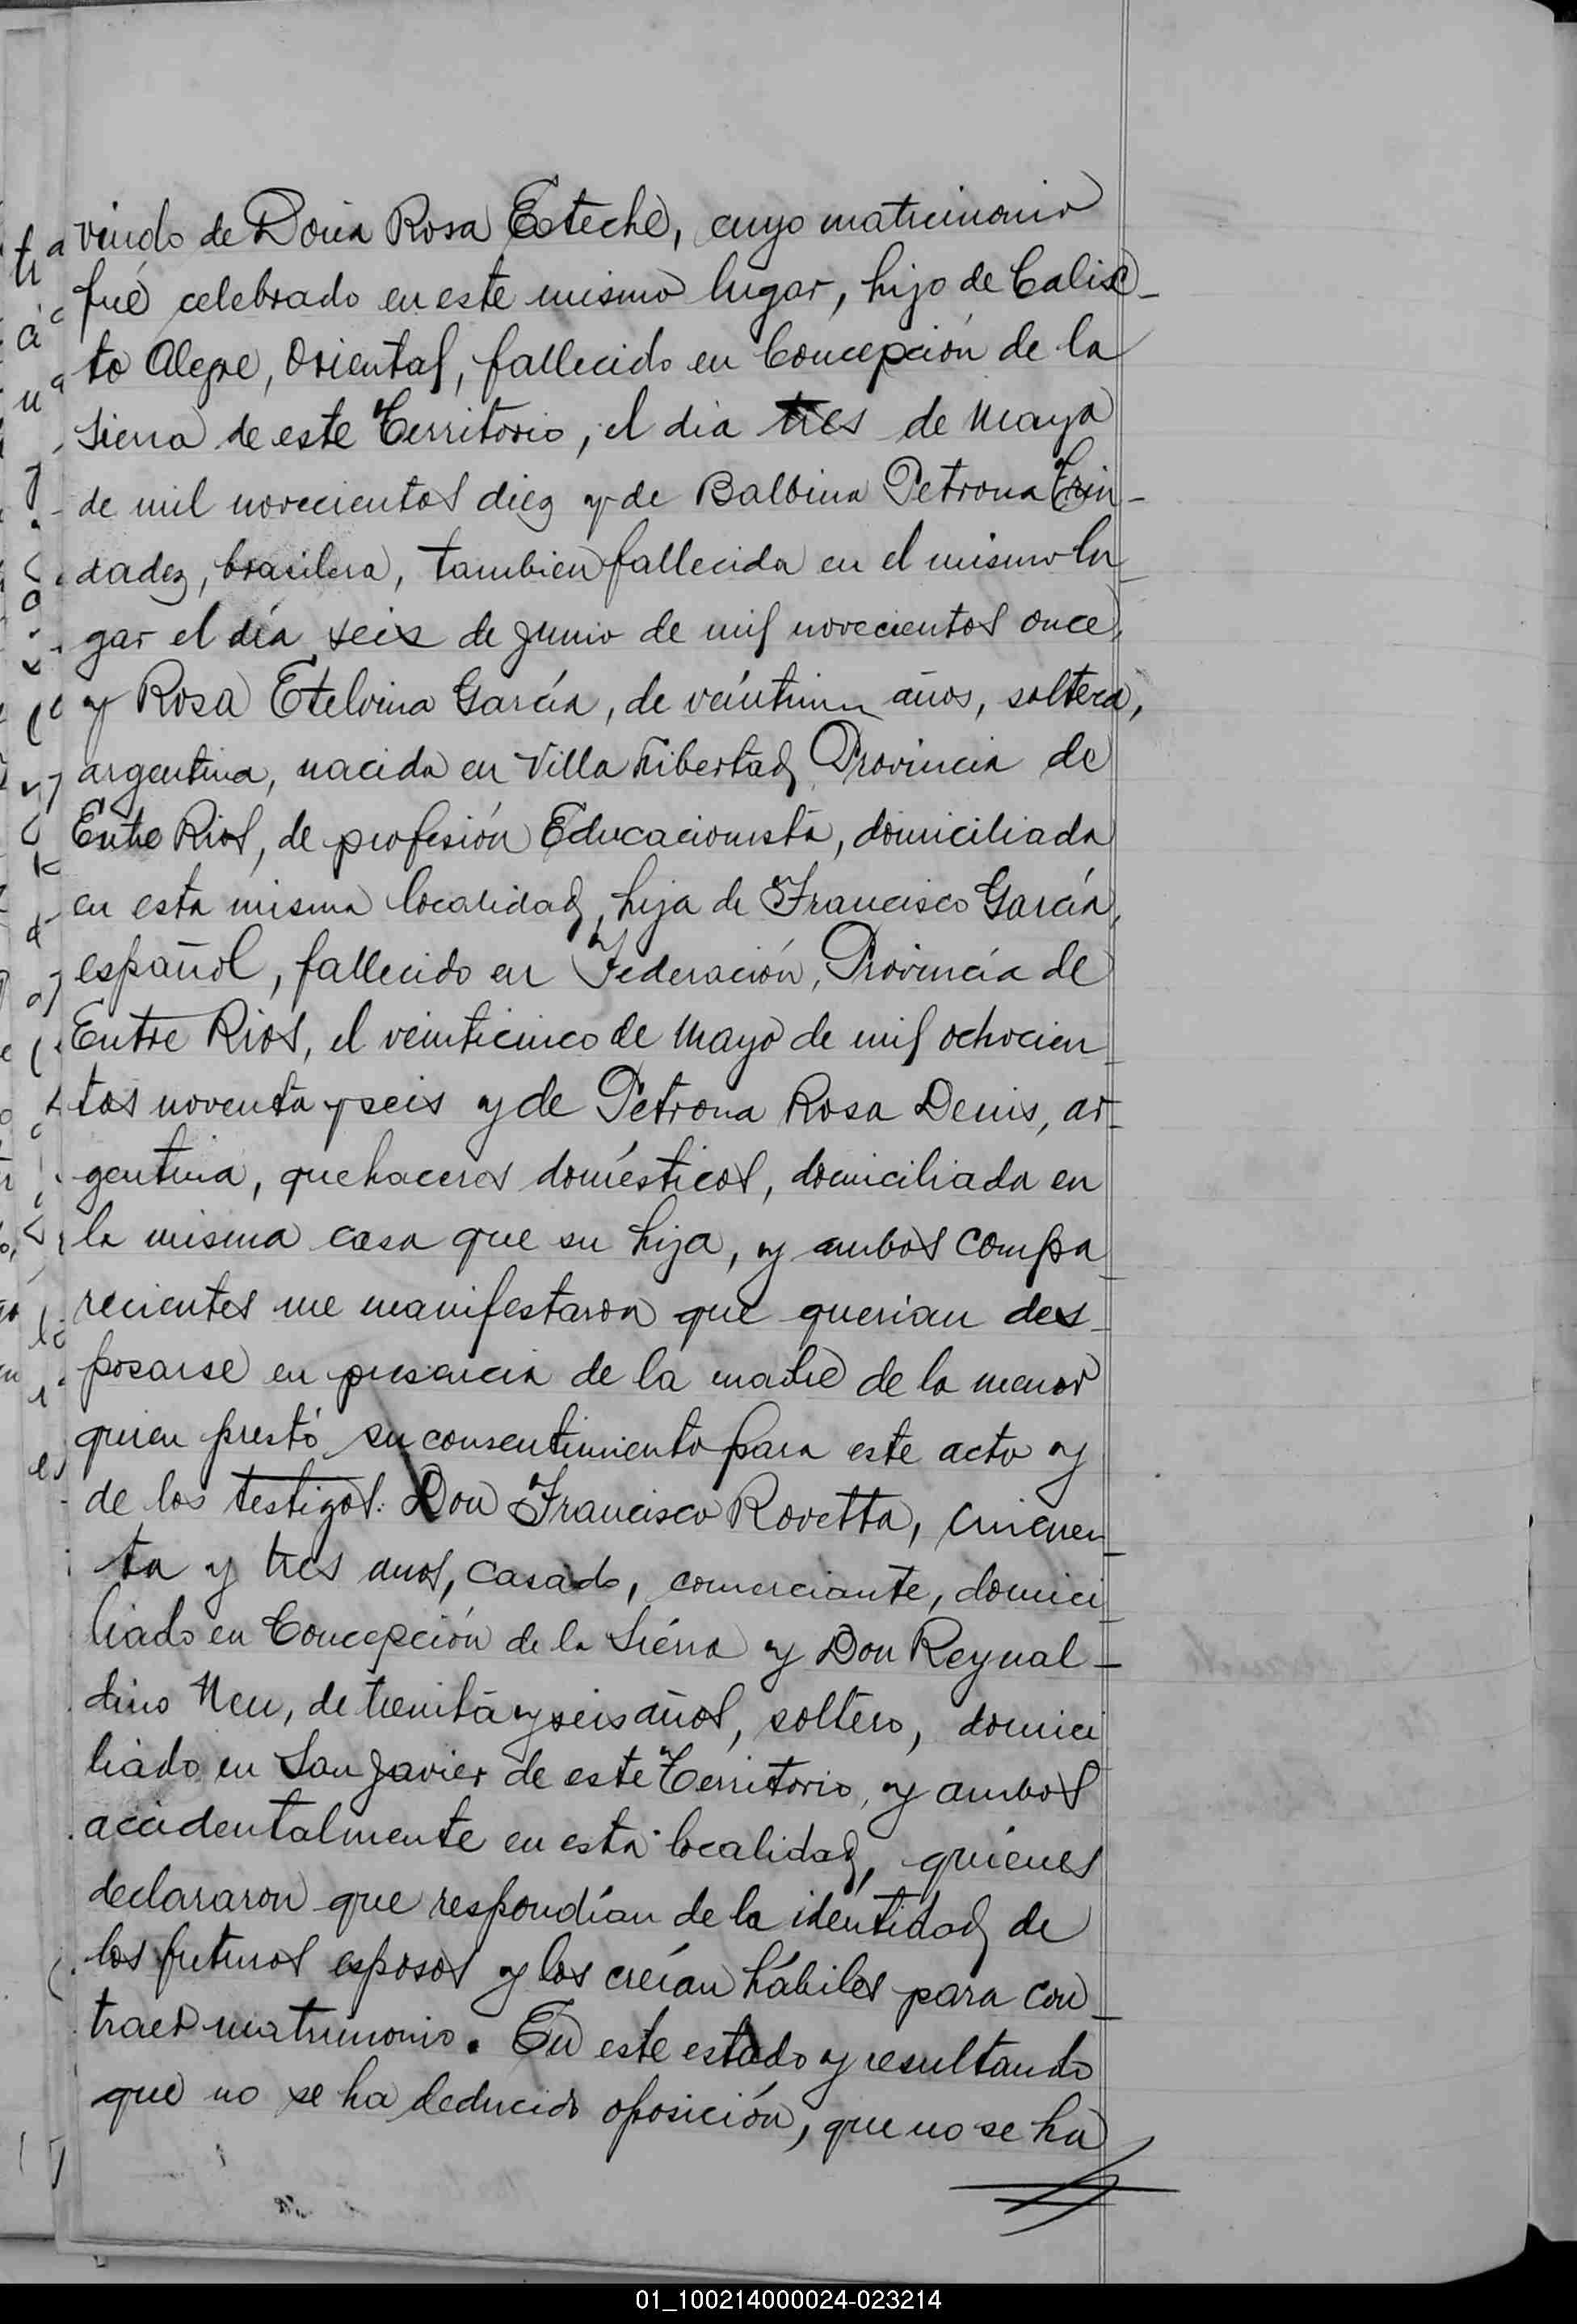 viudo de Doña Rosa Esteche, cuyo matrimonio
fué celebrado en este mismo lugar, hijo de Calis-
to Alegre, Oriental, fallecido en Concepción de la
Sierra de este Territorio, el dia tres de Mayo
de mil novecientos diez y de Balbina Petrona Trin-
dadez, brasilera, tambien fallecida en el mismo lu-
gar el día seis de Junio de mil novecientos once,
y Rosa Etelvina García, de veintiun años, soltera,
argentina, nacida en Villa Libertad, Provincia de
Entre Rios, de profesión Educacionista, domiciliada
en esta misma localidad, hija de Francisco García,
español, fallecido en Federación, Provincia de
Entre Rios, el veinticinco de Mayo de mil ochocien-
tos noventa y seis y de Petrona Rosa Denis, ar-
gentina, quehaceres domésticos, domiciliada en
la misma casa que su hija, y ambos compa-
recientes me manifestaron que querian des-
posarse en presencia de la madre de la menor
quien prestó su consentimiento para este acto y
de los testigos: Don Francisco Rovetta, cincuen-
ta y tres años, casado, comerciante, domici-
liado en Concepción de la Sierra y Don Reynal-
dino Neu, de treinta y seis años, soltero, domici-
liado en San Javier de este Territorio, y ambos
accidentalmente en esta localidad, quienes
declararon que respondían de la identidad de
los futuros esposos y los creían hábiles para con-
traer matrimonio. En este estado y resultando
que no se ha deducido oposición, que no se ha
01_100214000024-023214